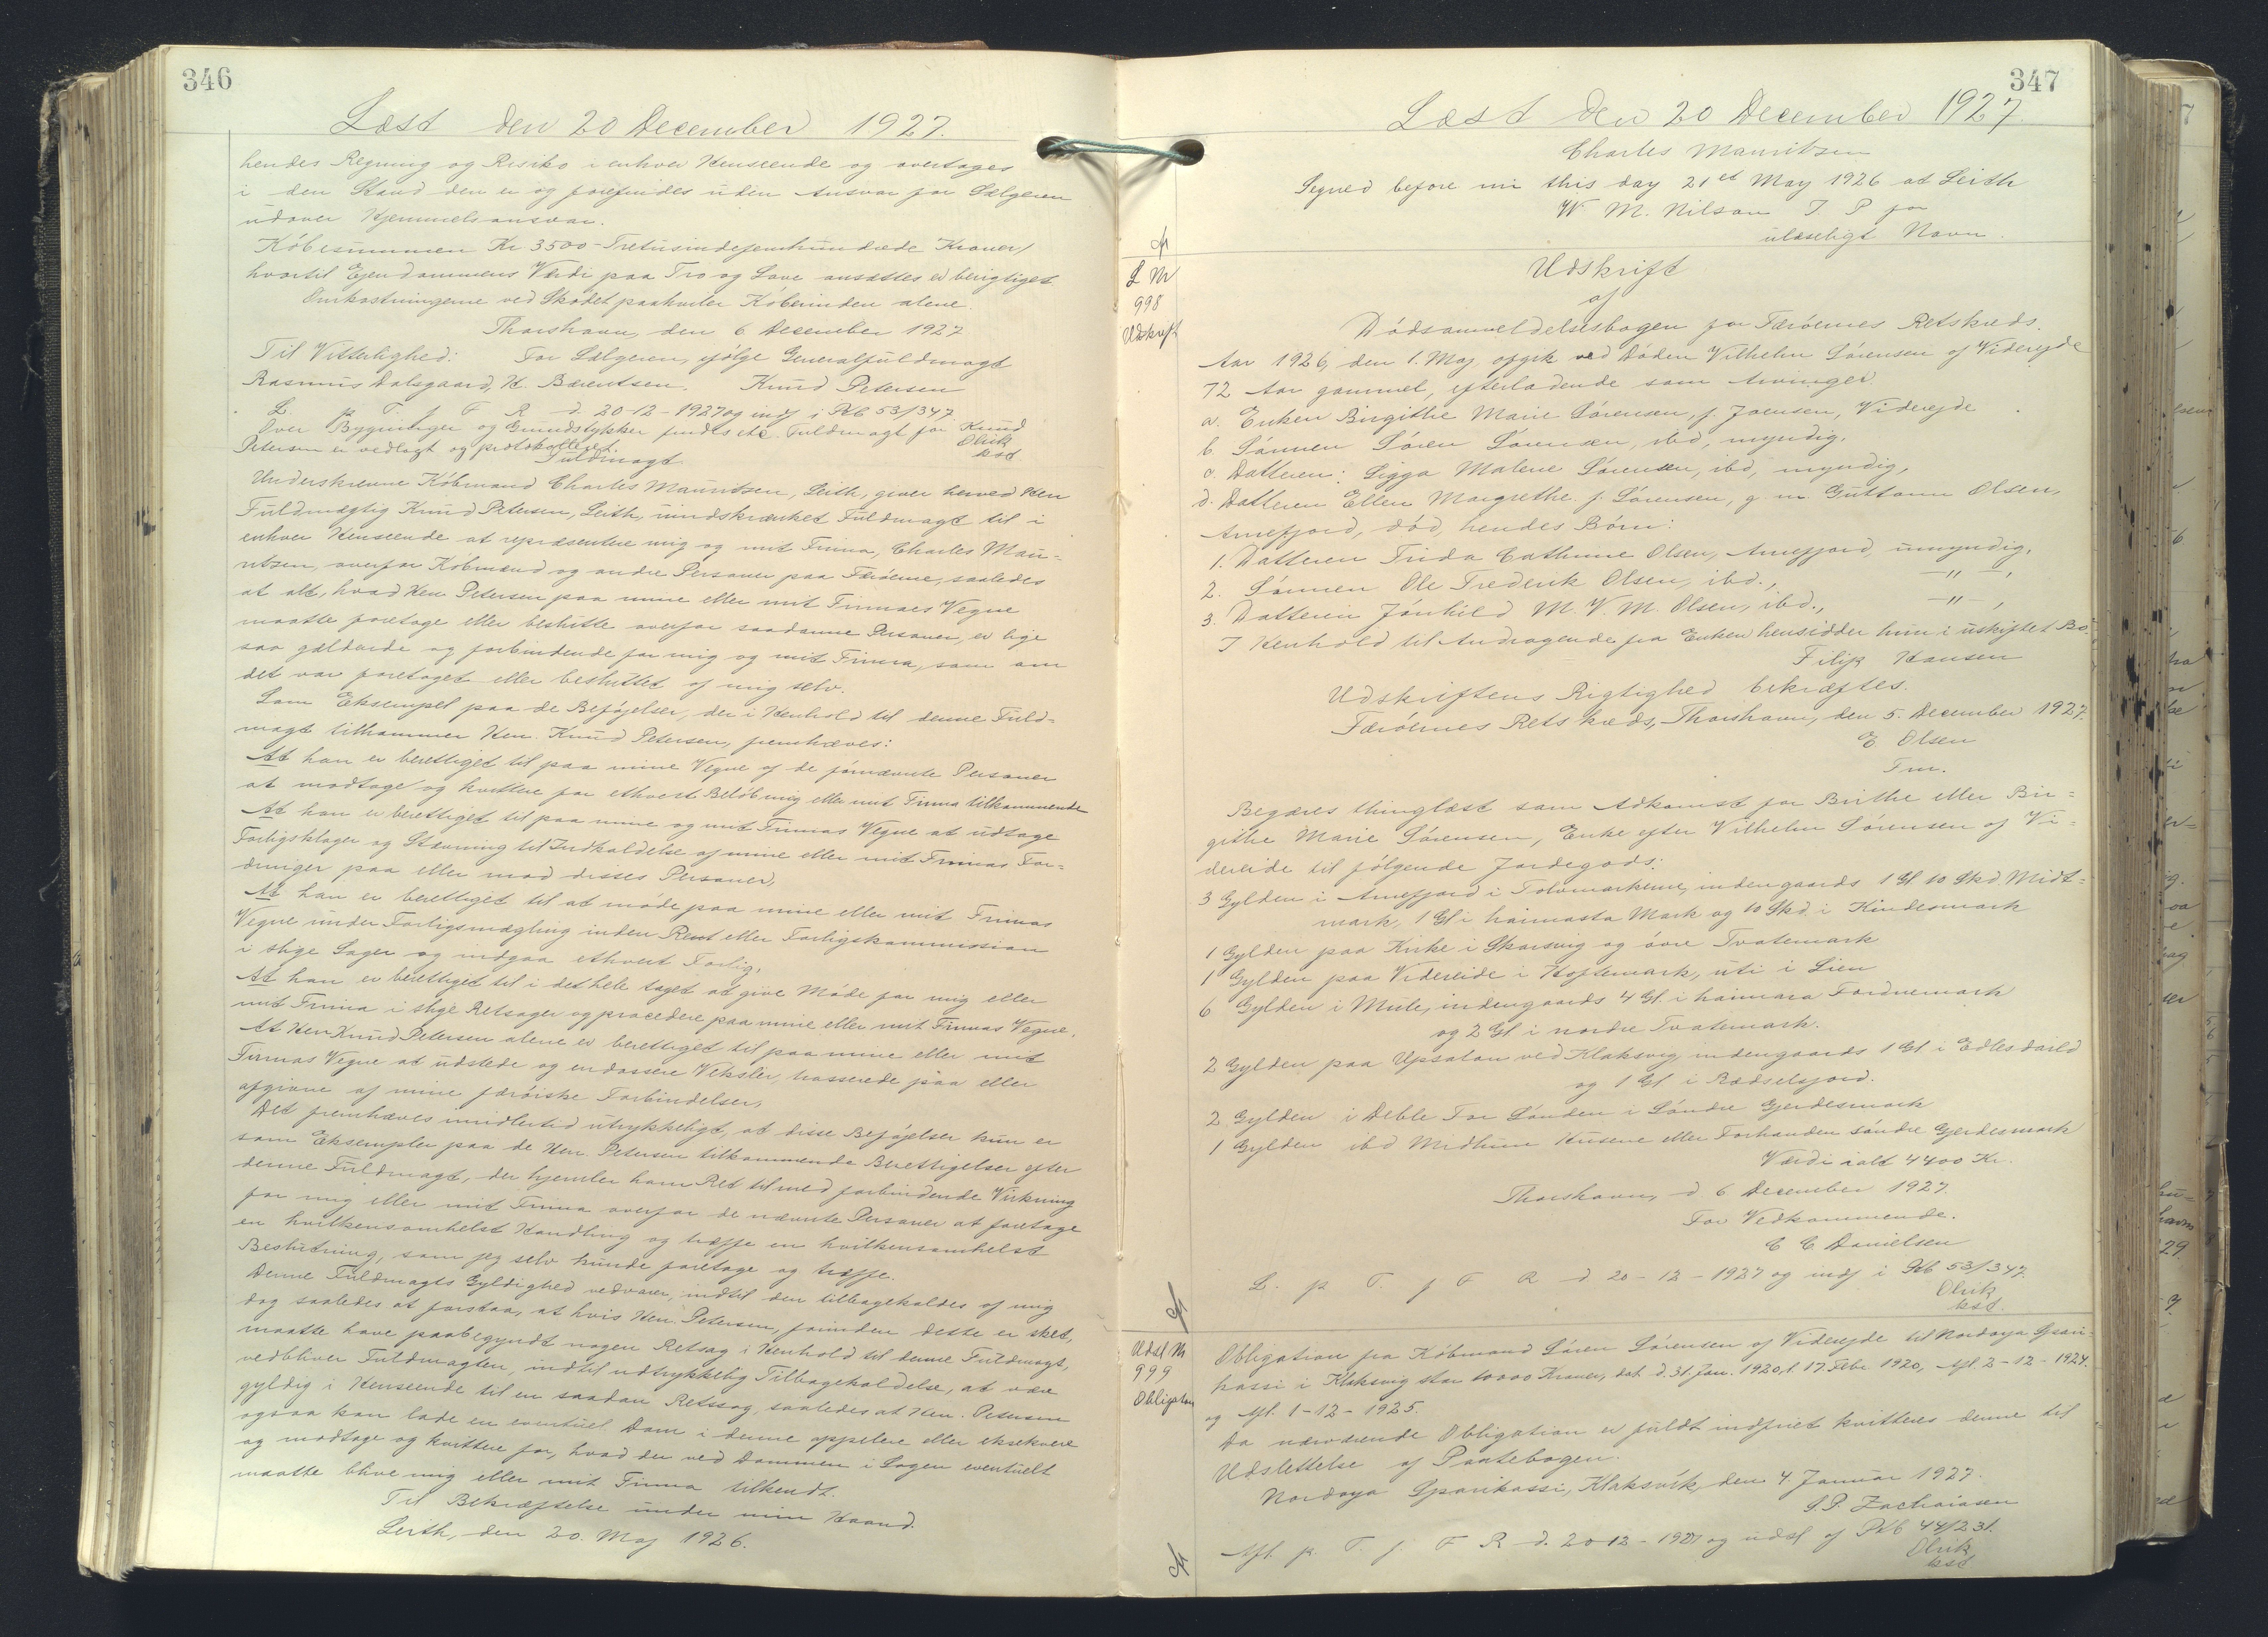 346
Læst den 20 December 1927.
hendes Regning og Risiko i enhver Henseende og overtages
i den Stand den er og forefindes uden Ansvar for Sælgeren
udover Hjemmelsansvar.
Köbesummen Kr 3500 - Tretusindefemhundrede Kroner/
hvortil Ejendommens Værdi paa Tro og Love ansættes er berigtiget.
Omkostningerne ved Skødet paahviler Köberinden alene
Thorshavn, den 6 December 1927
Til Vitterlighed: For Sælgeren, ifölge Generalfuldmagt
Rasmus Dalsgaard, H. Bærentsen. Knud Petersen
L. p T. f F R d. 20-12-1927 og indf i Pkb 53/347
Over Bygninger og Grundstykker findes etc. Fuldmagt for Knud
Petersen er vedlagt og protokolleret. Olrik
kst
Fuldmagt
Underskrevne Köbmand Charles Mauritsen, Leith, giver herved Herr
Fuldmægtig Knud Petersen, Leith, uindskrænket Fuldmagt til i
enhver Henseende at repræsentere mig og mit Firma, Charles Mau-
ritsen, overfor Köbmænd og andre Personer paa Færöerne, saaledes
at alt, hvad Herr Petersen paa mine eller mit Firmaes Vegne
maatte foretage eller beslutte overfor saadanne Personer, er lige
saa gældende og forbindende for mig og mit Firma, som om
det var foretaget eller besluttet af mig selv.
Som Eksempel paa de Beföjelser, der i Henhold til denne Fuld-
magt tilkommer Herr. Knud Petersen, fremhæves:
At han er berettiget til paa mine Vegne af de förnævnte Personer
at modtage og kvittere for ethvert Belöb mig eller mit Firma tilkommende
At han er berettiget til paa mine og mit Firmas Vegne at udtage
Forligsklager og Stævning til Indkaldelse af mine eller mit Firmas For-
dringer paa eller mod disses Personer,
At han er berettiget til at möde paa mine eller mit Firmas
Vegne under Forligsmægling inden Rent eller Forligskommission
i slige Sager og indgaa ethvert Forlig,
At han er berettiget til i det hele taget at give Möde for mig eller
mit Firma i slige Retsager og procedere paa mine eller mit Firmas Vegne.
At Herr Knud Petersen alene er berettiget til paa mine eller mit
Firmas Vegne at udstede og endossere Veksler, trasserede paa eller
afgivne af mine færöiske Forbindelser,
Det fremhæves imidlertid utrykkeligt, at disse Beföjelser kun er
som Eksempler paa de Herr Petersen tilkommende Berettigelser efter
denne Fuldmagt, der hjemler ham Ret til med forbindende Virkning
for mig eller mit Firma overfor de nævnte Personer at foretage
en hvilkensomhelst Handling og træffe en hvilkensomhelst
Beslutning, som jeg selv kunde foretage og træffe.
Denne Fuldmagts Gyldighed vedvarer, indtil den tilbagekaldes af mig
dog saaledes at forstaa, at hvis Herr Petersen, forinden dette er sket,
maatte have paabegyndt nogen Retsag i Henhold til denne Fuldmagt,
vedbliver Fuldmagten, indtil udtrykkelig Tilbagekaldelse, at være
gyldig i Henseende til en saadan Retssag, saaledes at Herr. Petersen
ogsaa kan lade en eventuel Dom i denne appelere eller eksekvere
og modtage og kvittere for, hvad der ved Dommen i Sagen eventuelt
maatte blive mig eller mit Firma tilkendt.
Til Bekræftelse under min Haand.
Leith, den 20. Maj 1926.
347
Læst den 20 December 1927.
Charles Mauritsen
Segned before me this day 21et May 1926 at Leith
W M. Nilson J. P for
ulæseligt Navn.
L Nr
998
Udskrift
Udskrift
af
Dödsanmeldelsesbogen for Færöernes Retskreds.
Aar 1926, den 1. Maj, afgik ved Döden Vilhelm Sörensen af Viderejde
72 Aar gammel, efterladende som Arvinger
a. Enken Birgithe Marie Sörensen, f. Joensen, Viderejde
b. Sönnen Sören Sörensen, ibd, myndig,
c. Datteren: Sigga Malene Sörensen, ibd, myndig,
d. Datteren Ellen Margrethe f. Sörensen, g. m. Guttorm Olsen,
Arnefjord, död, hendes Börn:
1. Datteren Frida Cathrine Olsen, Arnefjord, umyndig,
2. Sönnen Ole Frederik Olsen, ibd., -"-,
3. Datteren Jónhild M. V. M. Olsen, ibd., -"-,
I Henhold til Andragende fra Enken hensidder hun i uskiftet Bo.
Filip Hansen
Udskriftens Rigtighed bekræftes.
Færöernes Retskreds, Thorshavn, den 5. December 1927.
E. Olsen
Fm.
Begæres thinglæst som Adkomst for Birthe eller Bir-
githe Marie Sörensen, Enke efter Vilhelm Sörensen af Vi-
dereide til fölgende Jordegods:
3 Gylden i Arnefjord i Tolvmarkerne, indengaards 1 Gl 10 Skd Midt-
mark, 1 Gl i haimasta Mark og 10 Skd. i Kindesmark
1 Gylden paa Kirke i Skarsvig og övre Tvatemark
1 Gylden paa Videreide i Hoftemark, uti i Lien
6 Gylden i Mule, indengaards 4 Gl. i haimara Fordnemark
og 2 Gl i nordre Tvatemark.
2 Gylden paa Upsalan ved Klaksvig indengaards 1 Gl i Edles darld
og 1 Gl i Rædselsjord.
2 Gylden i Deble For Sönden i Söndre Gjerdesmark
1 Gylden ibd Midhun Husene eller Forhanden söndre Gjerdesmark
Værdi ialt 4400 Kr.
Thorshavn, d 6 December 1927.
For Vedkommende.
C C Danielsen
L. p T. f F R d 20-12-1927 og indf i Pkb 53/347.
Olrik
kst.
Udsl Nr
999
Obligation
Obligation fra Köbmand Sören Sörensen af Viderejde til Nordoya Spari-
kassi i Klaksvig stor 10000 Kroner, dat. d. 31. Jan. 1920, l. 17. Febr 1920, Afl. 2-12-1924.
og Afl. 1-12-1925.
Da nærværende Obligation er fuldt indfriet kvitteres denne til
Udslettelse af Pantebogen.
Nordoya Sparikassi, Klaksvík, den 4. Januar 1927.
S. P. Zachariasen
Afl. p T. f F R d. 20-12-1927 og udsl af Pkb 44/231.
Olrik
kst